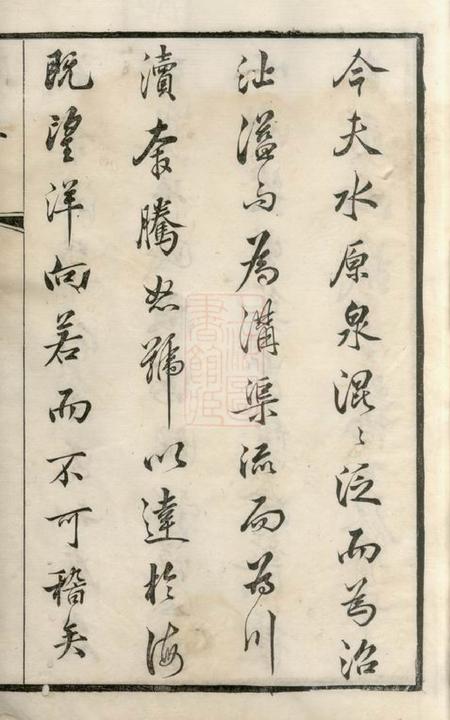 今夫水原泉混〻泛而為沼
沚溢而為溝渠流而為川
瀆奔騰怒號以達於海
既望洋向若而不可稽矣